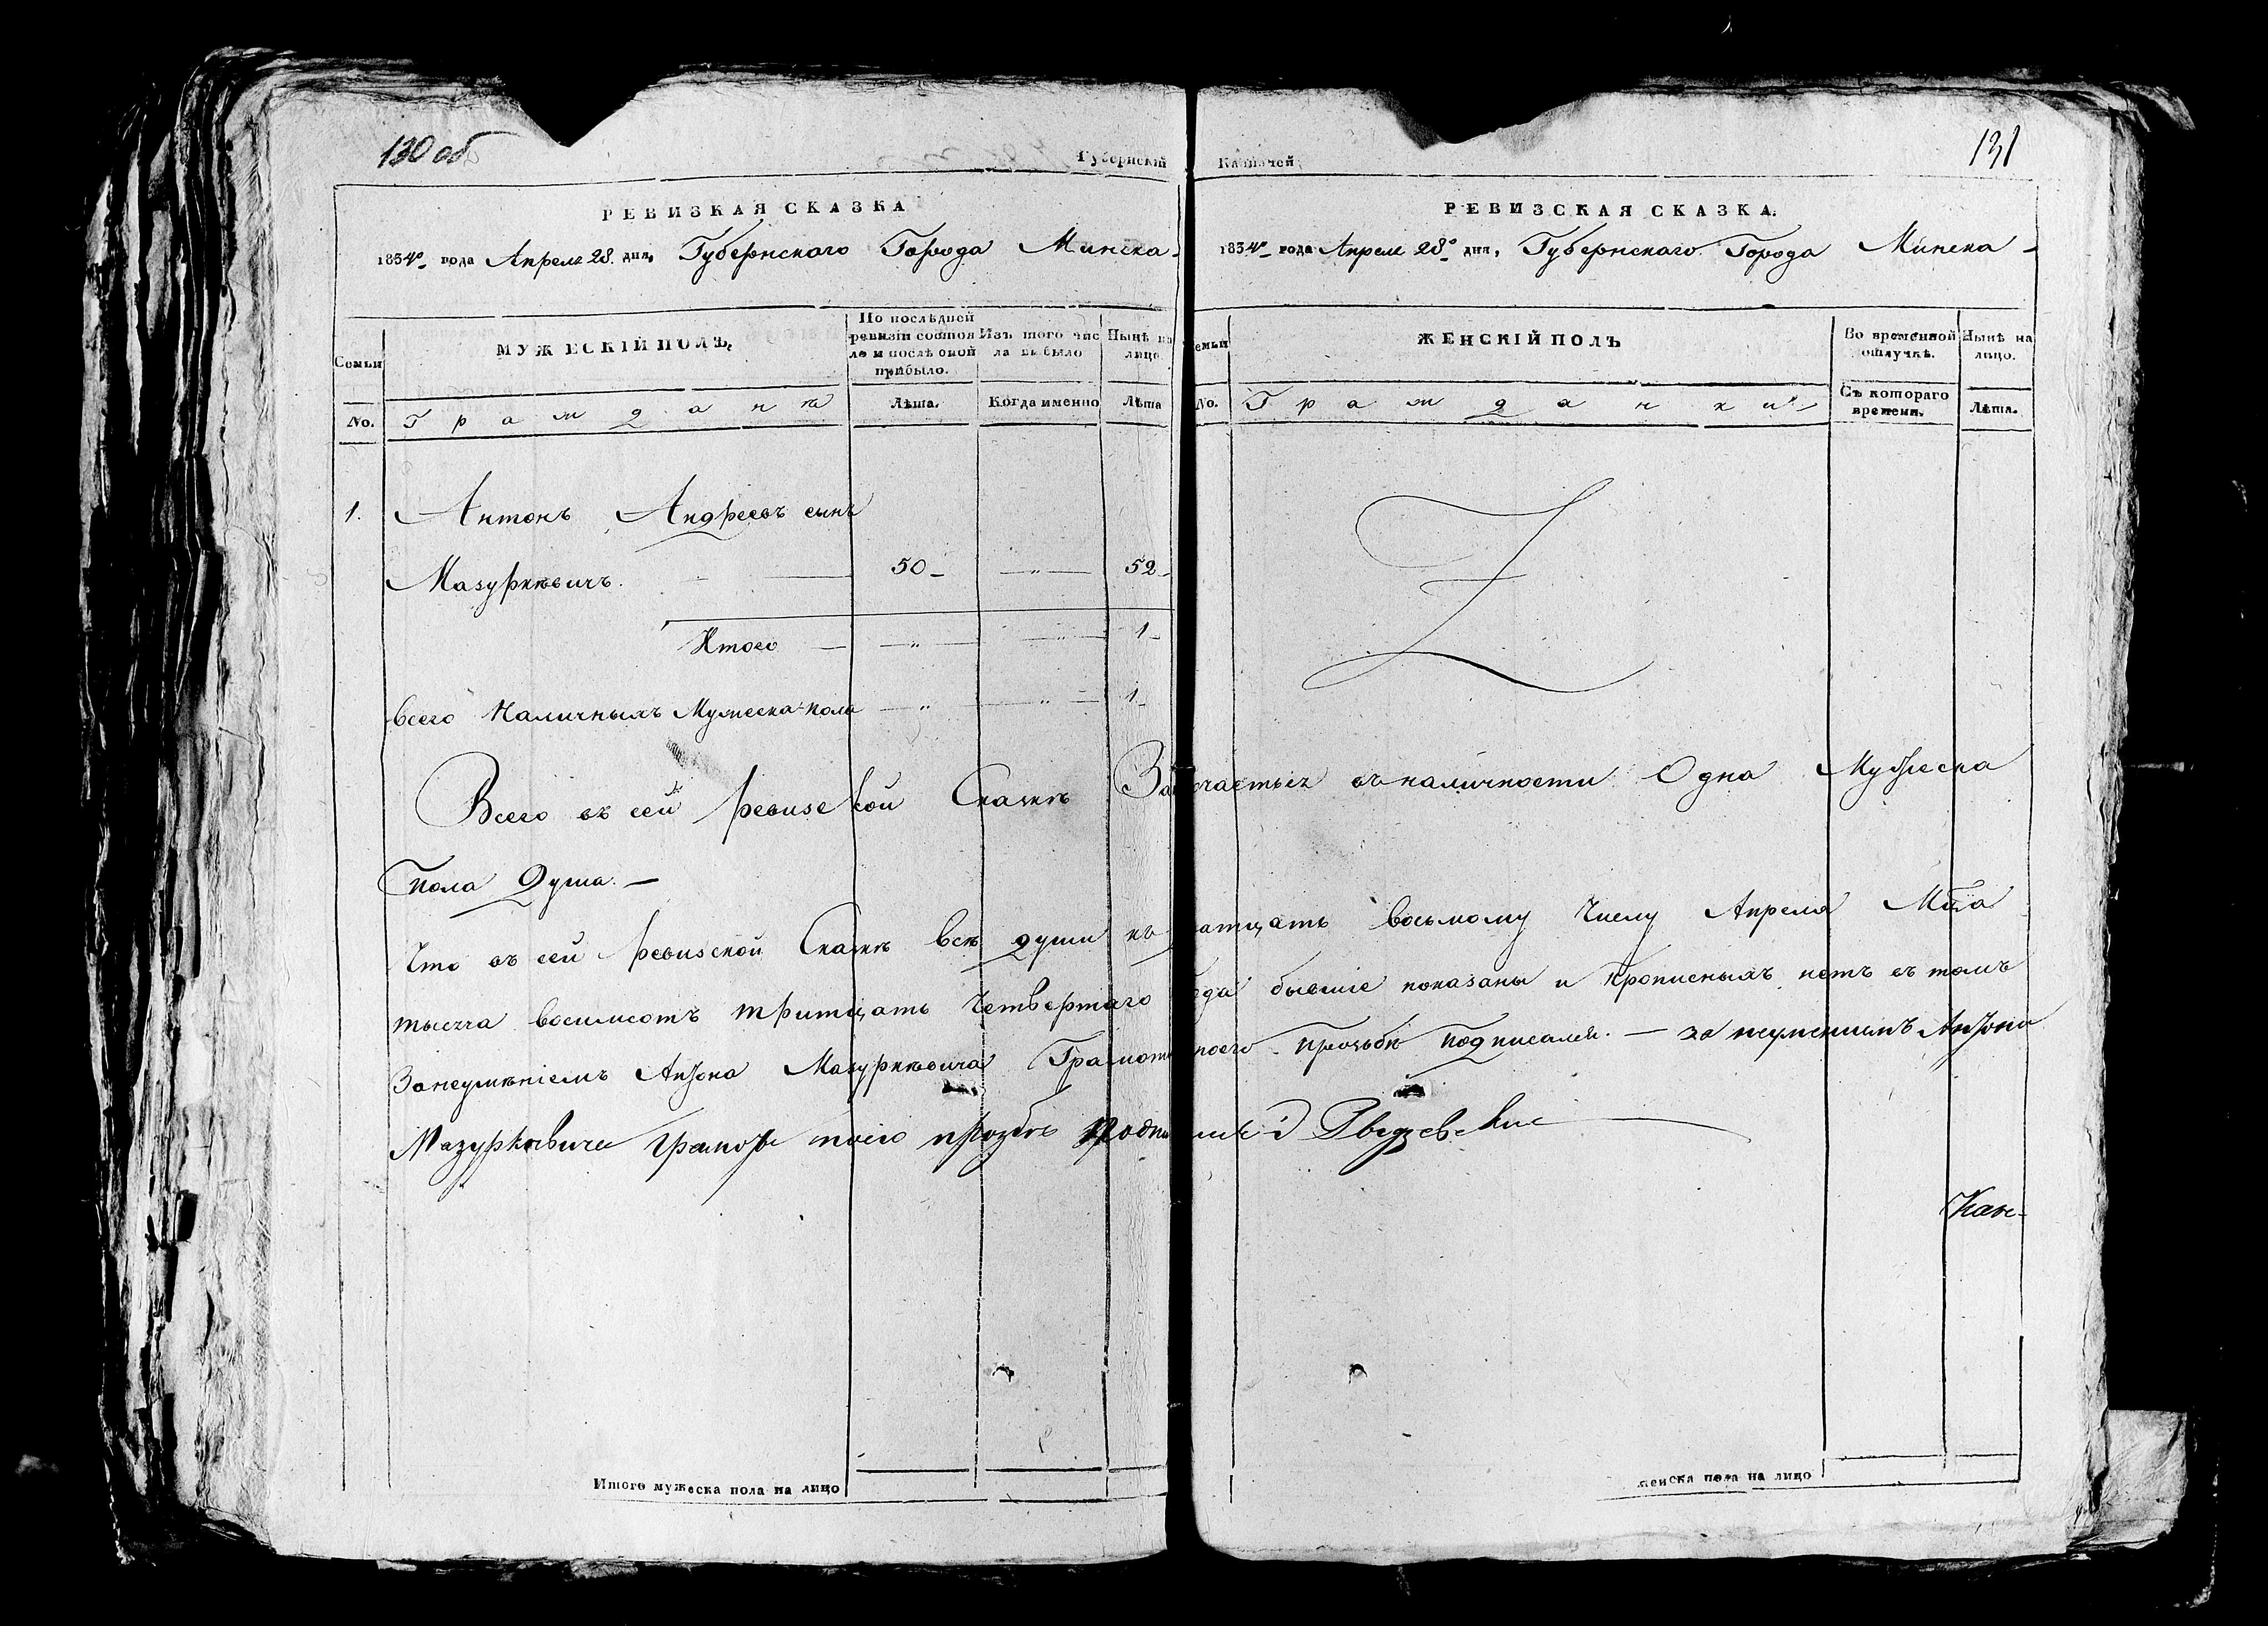 130 об
Губернскій Казначей
131
РЕВИЗКАЯ СКАЗКА
1834го года Апреля 28. дня, Губернскаго Города Минска
Семьи
МУЖЕСКІЙ ПОЛЪ,
По послѣдней ревизіи состояло и послѣ оной прибыло.
Изъ того числа выбыло
Нынѣ на лицо
No.
Граждане
Лѣта.
Когда именно
Лѣта
1.
Антонъ Андреевъ сынъ
Мазуркѣвичъ. 50 — „ — 52
Итого — „ — „ — 1
Всего Наличныхъ Мужеска пола — „ — „ — 1
РЕВИЗСКАЯ СКАЗКА.
1834го года Апреля 28го дня, Губернскаго Города Минска
емьи
ЖЕНСКІЙ ПОЛЪ
Во временной отлучкѣ.
Нынѣ на лицо.
No.
Гражданки
Съ котораго времени.
Лѣта.
Всего въ сей ревизской Сказкѣ въ наличности Одна Мужеска
пола Душа. —
Что въ сей ревизской Сказкѣ всѣ души къ атцать восьмому Числу Апреля Мца
тысеча восимсотъ тритцать Четвертаго года бывшіе показаны и Прописныхъ нетъ въ томъ
За неумѣніемъ Антона Мазуркѣвича Грамоте поего прозьбѣ подписался. — за неумениемъ Антона
Мазуркѣвича грамоте поего прозбѣ
Кан-
Итого мужеска пола на лицо
женска пола на лицо